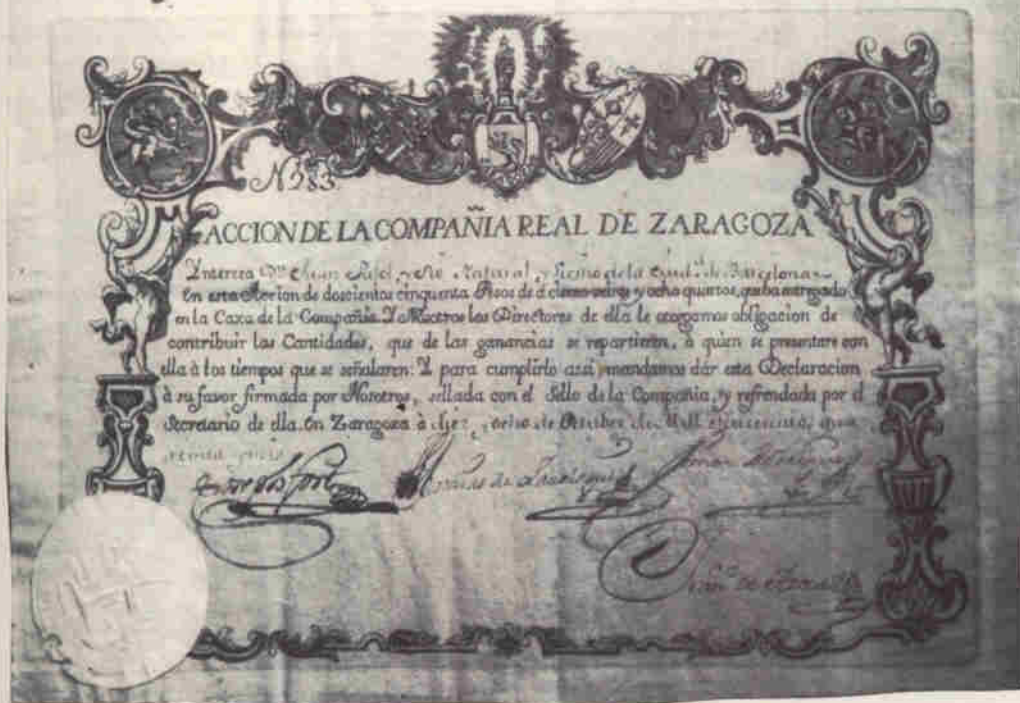 Nº 283.
ACCION DE LA COMPAÑIA REAL DE ZARAGOZA
Interesa Dn. Natural, y Vecino de la Ciud. de Barcelona
En esta Accion de doscientos cinquenta Pesos de à ciento veinte y ocho quartos, que ha entregado
en la Caxa de la Compañia. Y Nosotros los Directores de ella le otorgamos obligacion de
contribuir las Cantidades, que de las ganancias se repartieren, à quien se presentare con
ella à los tiempos que se señalaren: Y para cumplirlo assi, mandamos dàr esta Declaracion
à su favor firmada por Nosotros, sellada con el Sello de la Compañia, y refrendada por el
Secretario de ella. En Zaragoza à diez y ocho de Octubre de Mil Setecientos, qua
renta y